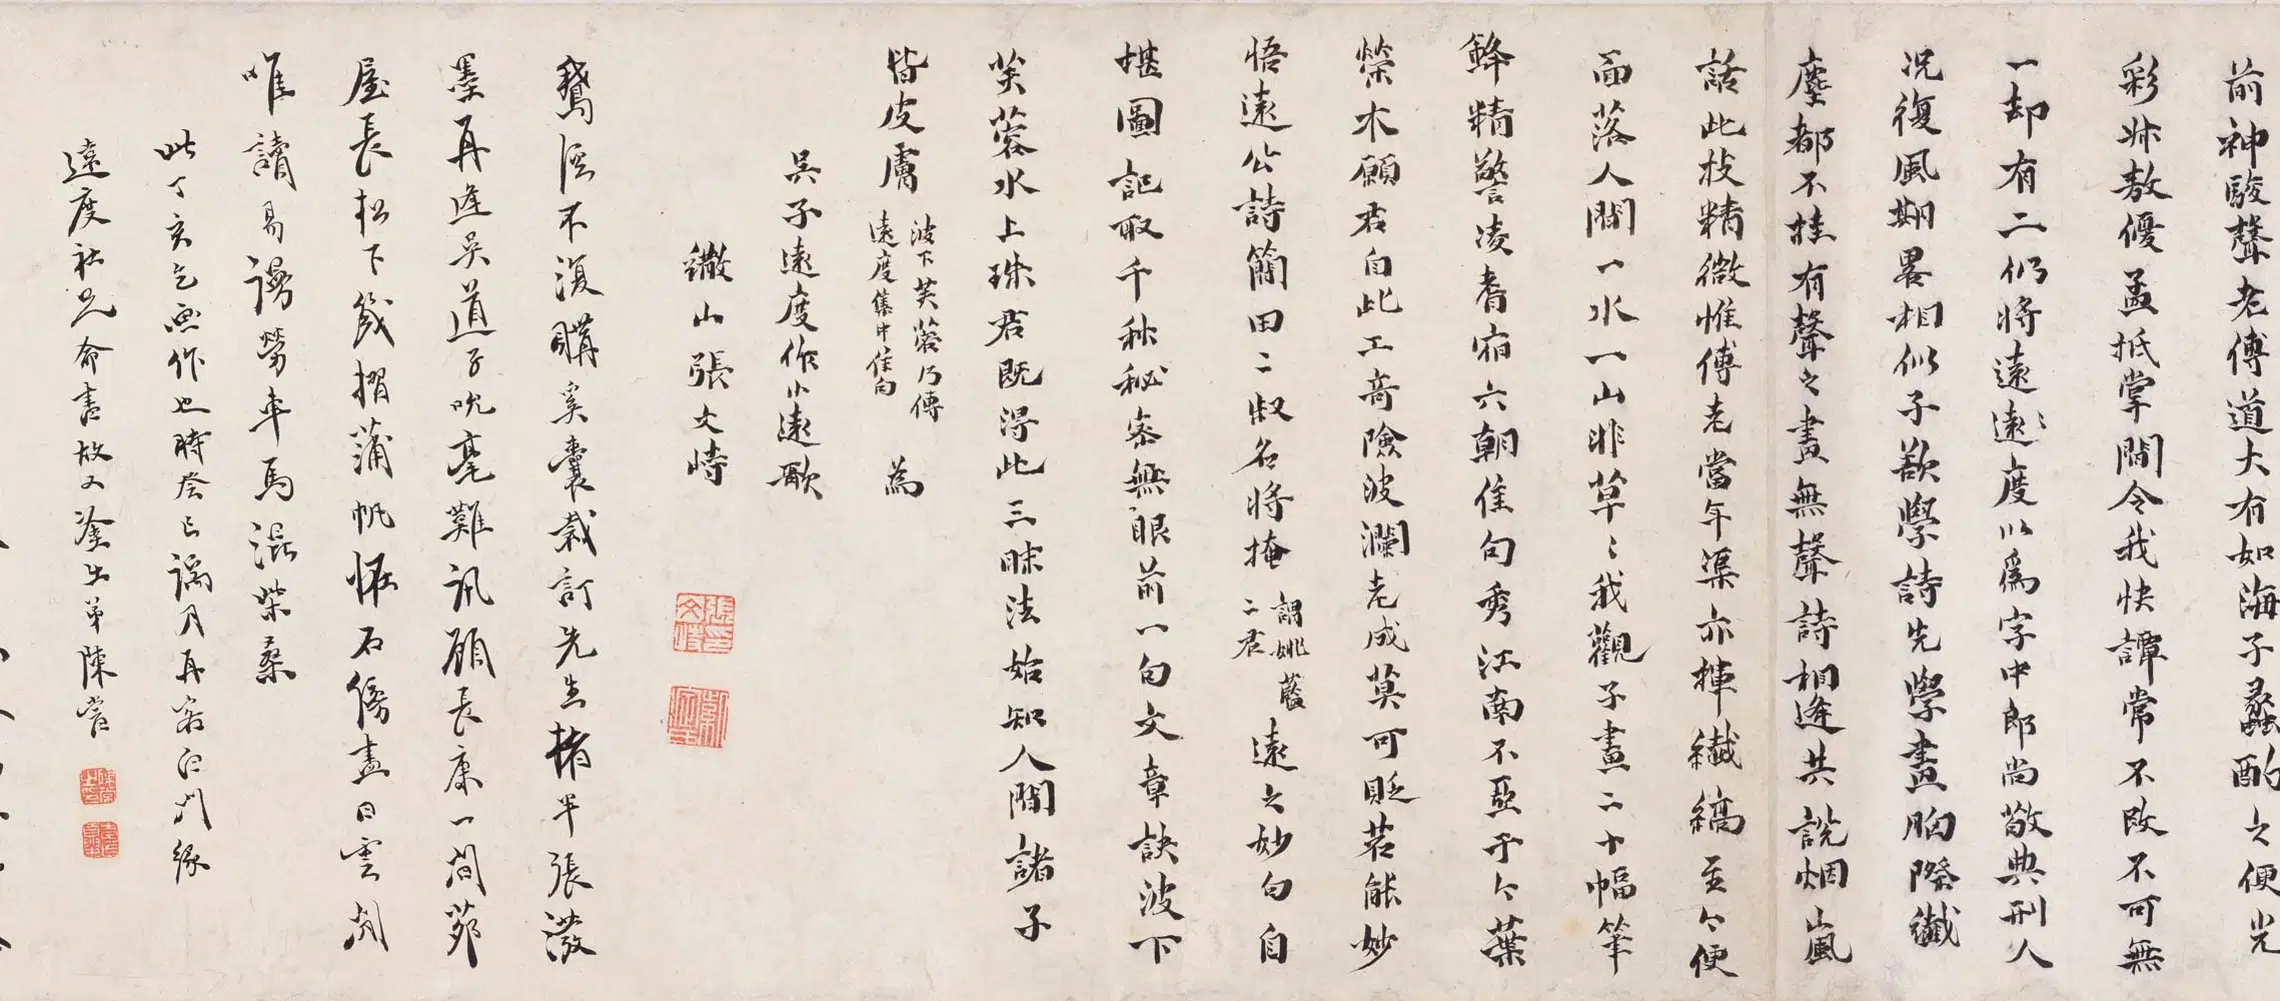 前神駿聲老傅道大有如海子蠡酌之便光
彩叔敖優孟抵掌間令我快譚常不改不可無
一却有二仍將遠遠度以為字中郎尚敬典刑人
況復風期畧相似子欲學詩先學畫胸際纖
塵都不挂有聲之畫無聲詩相逢共說烟嵐
話此枝精微惟傅老當年渠亦揮纖縞至今便
面落人間一水一山非草草我觀子畫二十幅筆
鋒精警凌耆宿六朝佳句秀江南不亞于今葉
榮木願君自此工奇險波瀾老成莫可貶若能妙
悟遠公詩簡田二叔名將掩
謂姚簡
二君
遠之妙句自
堪圖記取千秋秘密無眼前一句文章訣波下
芙蓉水上珠君既得此三昧法始知人間諸子
皆皮膚
波下芙蓉乃傅
遠度集中佳句
為
吳子遠度作小遠歌
繖山張文峙
鵞溪不復購奚囊裁訂先生楮半張潑
墨再逢吳道子吮毫難訊顧長康一間茆
屋長松下幾摺蒲帆怪石傍盡日雲間
唯讀易謾勞車馬混柴桑
此丁亥乞畫作也時癸巳謁月再客白門緣
遠度社兄命書故又塗出弟陳嘗